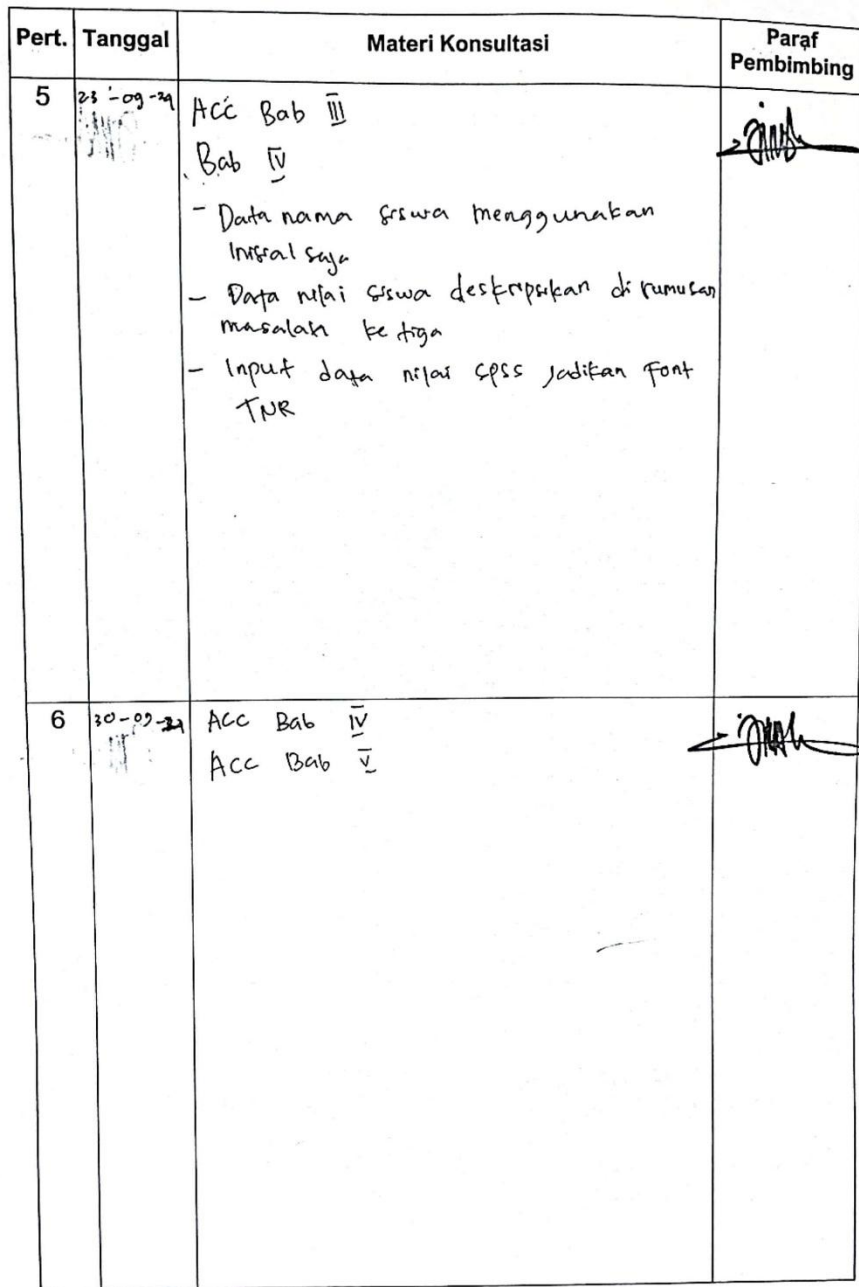 Pert. Tanggal Materi Konsultasi Paraf Pembimbing
5 23-09-24 Acc Bab III
Bab IV
- Data nama siswa menggunakan
inisial saja
- Data nilai siswa deskripsikan di rumusan
masalah ketiga
- Input data nilai SPSS jadikan Font
TNR
6 30-09-24 Acc Bab IV
Acc Bab V